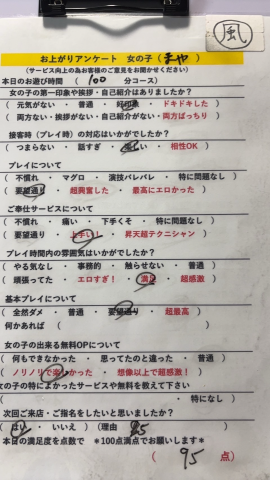 風
お上がりアンケート 女の子( まや )
(サービス向上の為お客様のご意見をお聞かせください)
本日のお遊び時間 ( 100 分コース)
女の子の第一印象や挨拶・自己紹介はありましたか?
( 元気がない ・ 普通 ・ 好印象 ・ ドキドキした )
( 両方ない・挨拶がない・自己紹介がない・両方ばっちり )
接客時(プレイ時)の対応はいかがでしたか?
( つまらない ・ 話すぎ ・ 楽しい ・ 相性OK )
プレイについて
( 不慣れ ・ マグロ ・ 演技バレバレ ・ 特に問題なし )
( 要望通り ・ 超興奮した ・ 最高にエロかった )
ご奉仕サービスについて
( 不慣れ ・ 痛い ・ 下手くそ ・ 特に問題なし )
( 要望通り ・ 上手い! ・ 昇天超テクニシャン )
プレイ時間内の雰囲気はいかがでしたか?
( やる気なし ・ 事務的 ・ 触らせない ・ 普通 )
( 頑張ってた ・ エロすぎ! ・ 満足 ・ 超感激 )
基本プレイについて
( 全然ダメ ・ 普通 ・ 要望通り ・ 超最高 )
何かあれば ( )
女の子の出来る無料OPについて
( 何もできなかった ・ 思ってたのと違った ・ 普通 )
( ノリノリで楽しかった ・ 想像以上で超感激! )
女の子の特によかったサービスや無料を教えて下さい
( ・ 特になし )
次回ご来店・ご指名をしたいと思いましたか?
( はい ・ いいえ ) (理由
本日の満足度を点数で *100点満点でお願いします*
( 95 点)